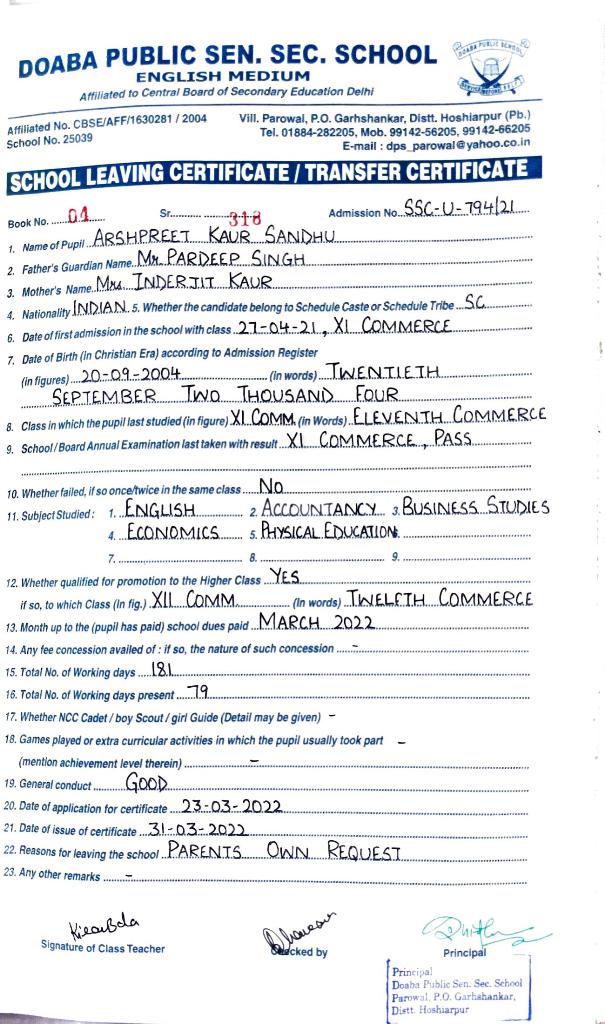 DOABA PUBLIC SEN. SEC. SCHOOL
ENGLISH MEDIUM
Affiliated to Central Board of Secondary Education Delhi
DOABA PUBLIC SCHOOL
Affiliated No. CBSE/AFF/1630281 / 2004
School No. 25039
Vill. Parowal, P.O. Garhshankar, Distt. Hoshiarpur (Pb.)
Tel. 01884-282205, Mob. 99142-56205, 99142-66205
E-mail : dps_parowal@yahoo.co.in
SCHOOL LEAVING CERTIFICATE / TRANSFER CERTIFICATE
Book No. 01 Sr. 318 Admission No. SSC-U-794/21
1. Name of Pupil ARSHPREET KAUR SANDHU
2. Father's Guardian Name Mr. PARDEEP SINGH
3. Mother's Name Mrs. INDERJIT KAUR
4. Nationality INDIAN 5. Whether the candidate belong to Schedule Caste or Schedule Tribe SC
6. Date of first admission in the school with class 27-04-21, XI COMMERCE
7. Date of Birth (in Christian Era) according to Admission Register
(in figures) 20-09-2004 (in words) TWENTIETH
SEPTEMBER TWO THOUSAND FOUR
8. Class in which the pupil last studied (in figure) XI COMM. (in Words) ELEVENTH COMMERCE
9. School / Board Annual Examination last taken with result XI COMMERCE, PASS
10. Whether failed, if so once/twice in the same class NO
11. Subject Studied : 1. ENGLISH 2. ACCOUNTANCY 3. BUSINESS STUDIES
4. ECONOMICS 5. PHYSICAL EDUCATION 6.
7. 8. 9.
12. Whether qualified for promotion to the Higher Class YES
if so, to which Class (In fig.) XII COMM (In words) TWELFTH COMMERCE
13. Month up to the (pupil has paid) school dues paid MARCH 2022
14. Any fee concession availed of : if so, the nature of such concession -
15. Total No. of Working days 181
16. Total No. of Working days present 79
17. Whether NCC Cadet / boy Scout / girl Guide (Detail may be given) -
18. Games played or extra curricular activities in which the pupil usually took part -
(mention achievement level therein) -
19. General conduct GOOD
20. Date of application for certificate 23-03-2022
21. Date of issue of certificate 31-03-2022
22. Reasons for leaving the school PARENTS OWN REQUEST
23. Any other remarks -
KiranBala
Signature of Class Teacher
Checked by
Principal
Principal
Doaba Public Sen. Sec. School
Parowal, P.O. Garhshankar,
Distt. Hoshiarpur